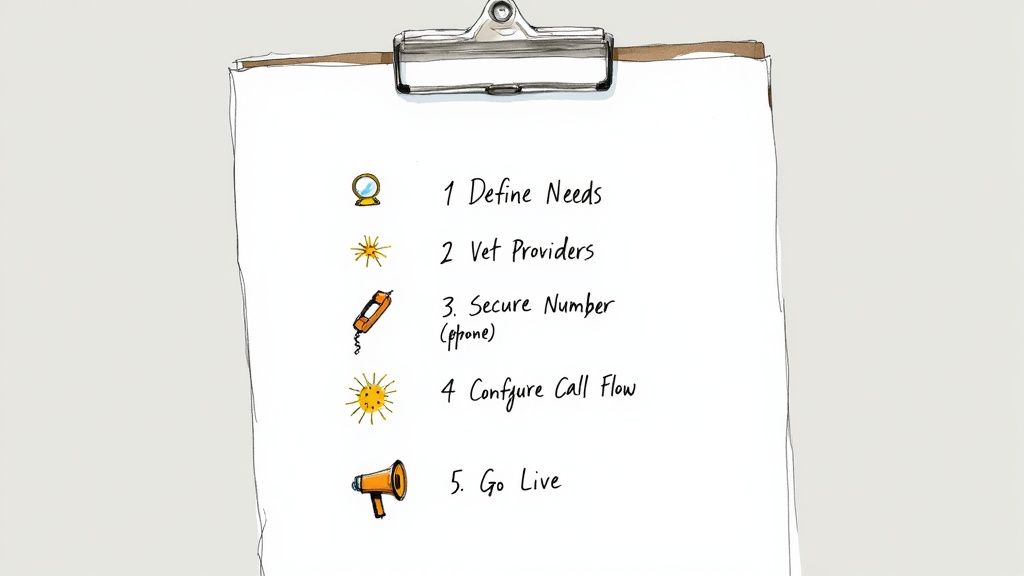 1 Define Needs
2 Vet Providers
3. Secure Number
(ppone)
4 Confgure Call Flow
5. Go Live